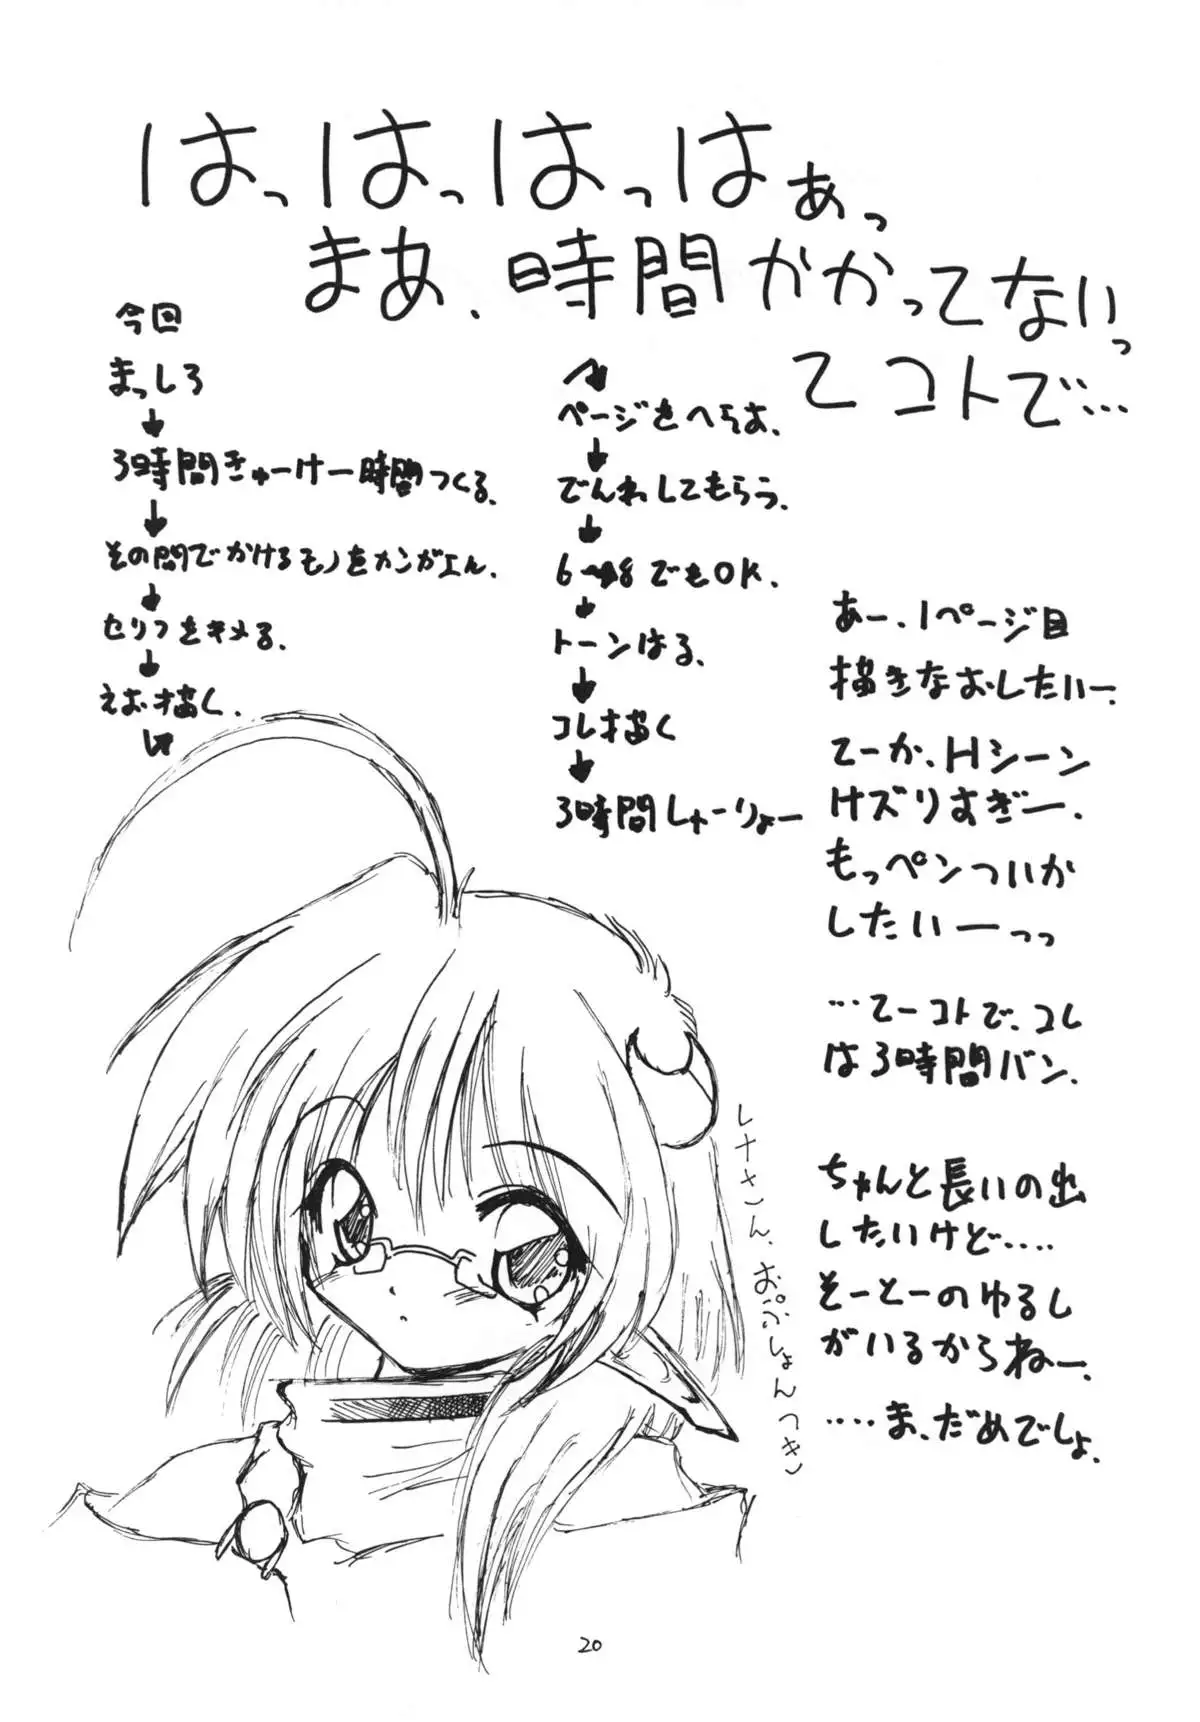 はっはっはっはぁっ
まあ、時間かかってないっ
てコトで…
今回
まっしろ
↓
3時間きゅーけー時間つくる。
↓
その間でかけるモノをカンガエん。
↓
セリフをキメる。
↓
えお描く。
ページをへらす。
↓
でんわしてもらう。
↓
6→8でもOK.
↓
トーンはる。
↓
コレ描く
↓
3時間しゅーりょー
あー、1ページ目
描きなおしたいー。
てーか、Hシーン
けズりすぎー。
もっペンついか
したいーっっ
…てーコトで、コレ
は3時間バン。
ちゃんと長いの出
したいけど‥‥
そーとーのゆるし
がいるからねー。
‥‥ま、だめでしょ。
レナさん、おぷしょんつき
20